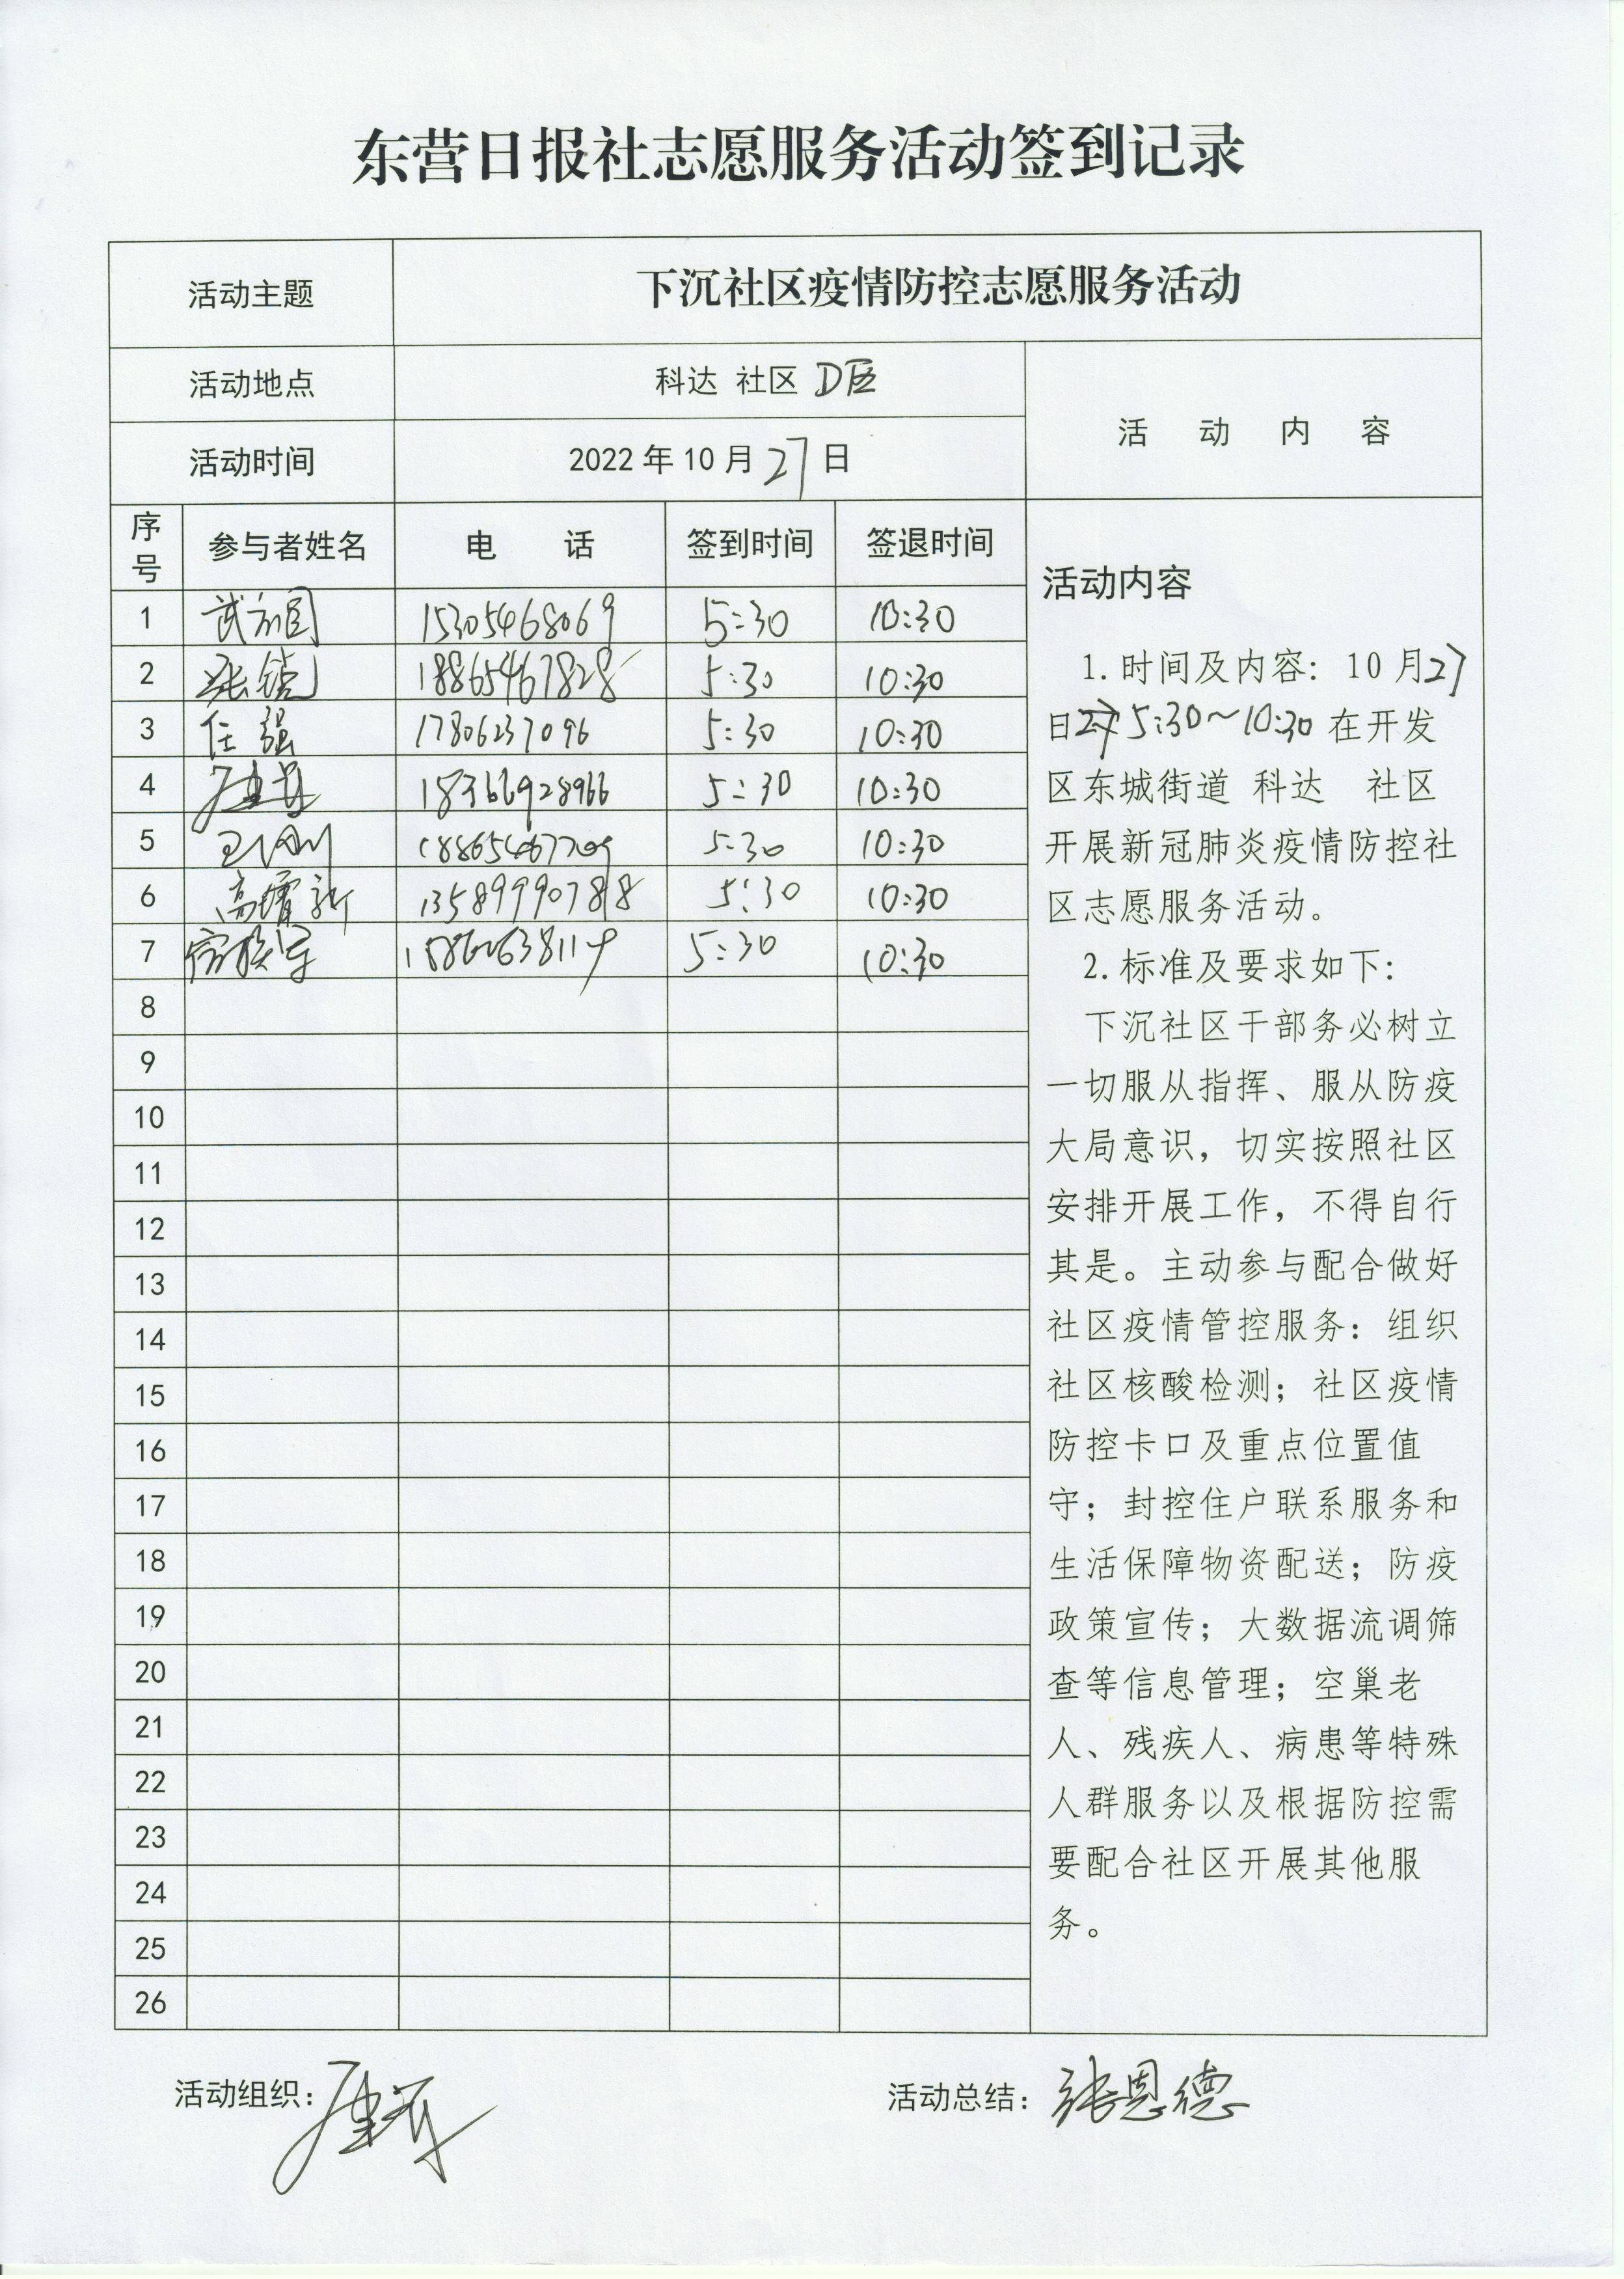 东营日报社志愿服务活动签到记录
活动主题 下沉社区疫情防控志愿服务活动
活动地点 科达 社区 D区
活动时间 2022年10月27日
活动内容
序号 参与者姓名 电话 签到时间 签退时间
1 15305468069 5:30 10:30
2 张锐 18865467828 5:30 10:30
3 任强 17806237096 5:30 10:30
4 18366928966 5:30 10:30
5 5:30 10:30
6 13589990788 5:30 10:30
7 5:30 10:30
8
9
10
11
12
13
14
15
16
17
18
19
20
21
22
23
24
25
26
活动内容
1.时间及内容：10月27
日 5:30～10:30 在开发
区东城街道 科达 社区
开展新冠肺炎疫情防控社
区志愿服务活动。
2.标准及要求如下：
下沉社区干部务必树立
一切服从指挥、服从防疫
大局意识，切实按照社区
安排开展工作，不得自行
其是。主动参与配合做好
社区疫情管控服务：组织
社区核酸检测；社区疫情
防控卡口及重点位置值
守；封控住户联系服务和
生活保障物资配送；防疫
政策宣传；大数据流调筛
查等信息管理；空巢老
人、残疾人、病患等特殊
人群服务以及根据防控需
要配合社区开展其他服
务。
活动组织：
活动总结：张恩德